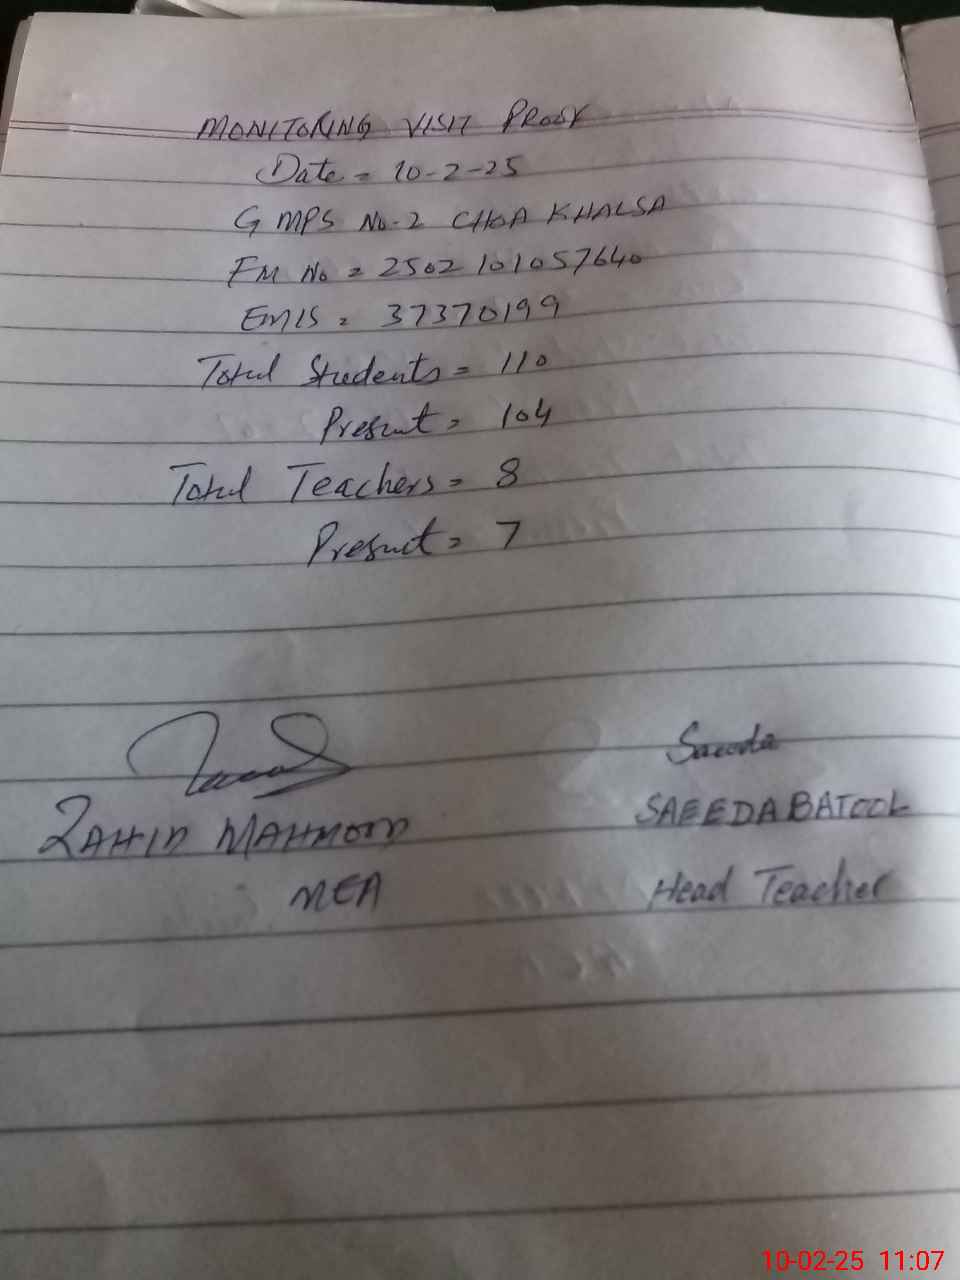 MONITORING VISIT PROOF
Date = 10-2-25
G MPS No-2 CHOA KHALSA
FM No = 2502101057640
EMIS = 37370199
Total Students = 110
Present = 104
Total Teachers = 8
Present = 7
Saeeda
ZAHID MAHMOOD
SAEEDA BATOOL
MEA
Head Teacher
10-02-25 11:07